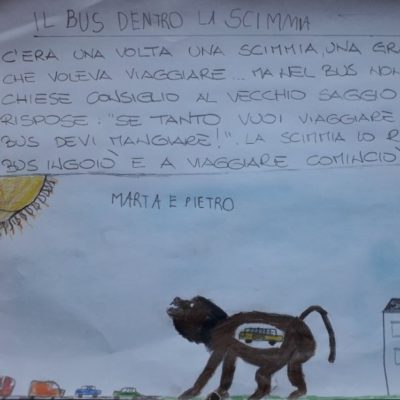 IL BUS DENTRO LA SCIMMIA
C'ERA UNA VOLTA UNA SCIMMIA, UNA
CHE VOLEVA VIAGGIARE... MA NEL BUS NON
CHIESE CONSIGLIO AL VECCHIO SAGGIO
RISPOSE: "SE TANTO VUOI VIAGGIARE
BUS DEVI MANGIARE!". LA SCIMMIA LO
BUS INGOIÒ E A VIAGGIARE COMINCIÒ
MARTA E PIETRO